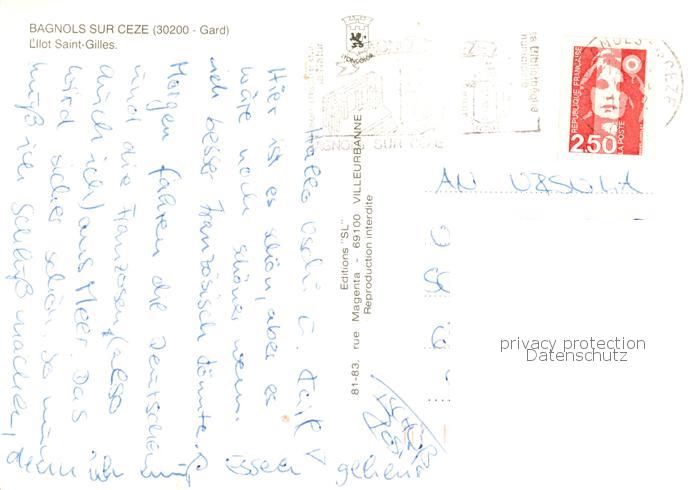 BAGNOLS SUR CEZE (30200 - Gard)
L'Ilot Saint-Gilles.
Hallo Uschi u.
Hier ist es schön, aber es
wäre noch schöner wenn
ich besser Französisch könnte.
Morgen fahren die Deutschen
und die Franzosen (also
auch ich) ans Meer. Das
wird sicher schön. So nun
muß ich Schluß machen,
denn ich muß essen gehen!
Editions "SL"
81-83, rue Magenta - 69100 VILLEURBANNE
Reproduction interdite
BAGNOLS SUR CEZE
REPUBLIQUE FRANÇAISE
2,50
LA POSTE
AN URSULA
privacy protection
Datenschutz